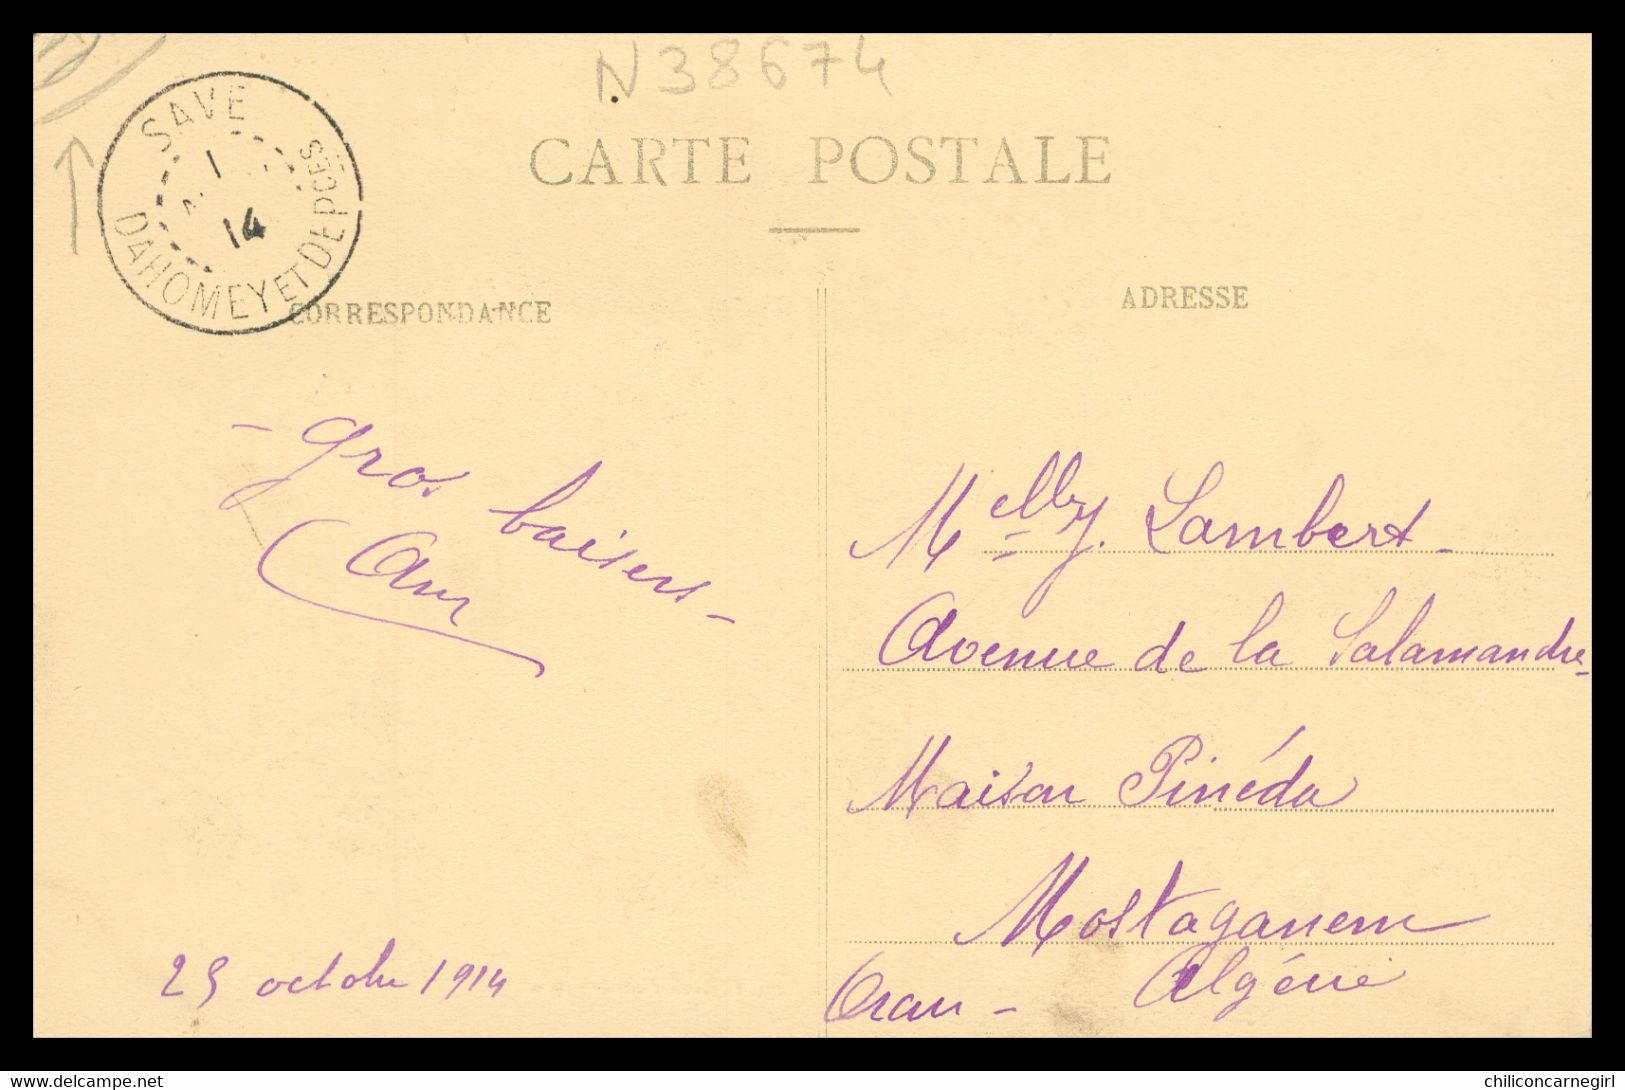 N38674
SAVE
1
14
DAHOMEY ET DEPCES
CARTE POSTALE
CORRESPONDANCE
ADRESSE
- gros baisers -
Melle J. Lambert -
Avenue de la Salamandre -
Maison Pinéda
Mostaganem
Oran - Algérie
25 octobre 1914
delcampe.net
chiliconcarnegirl